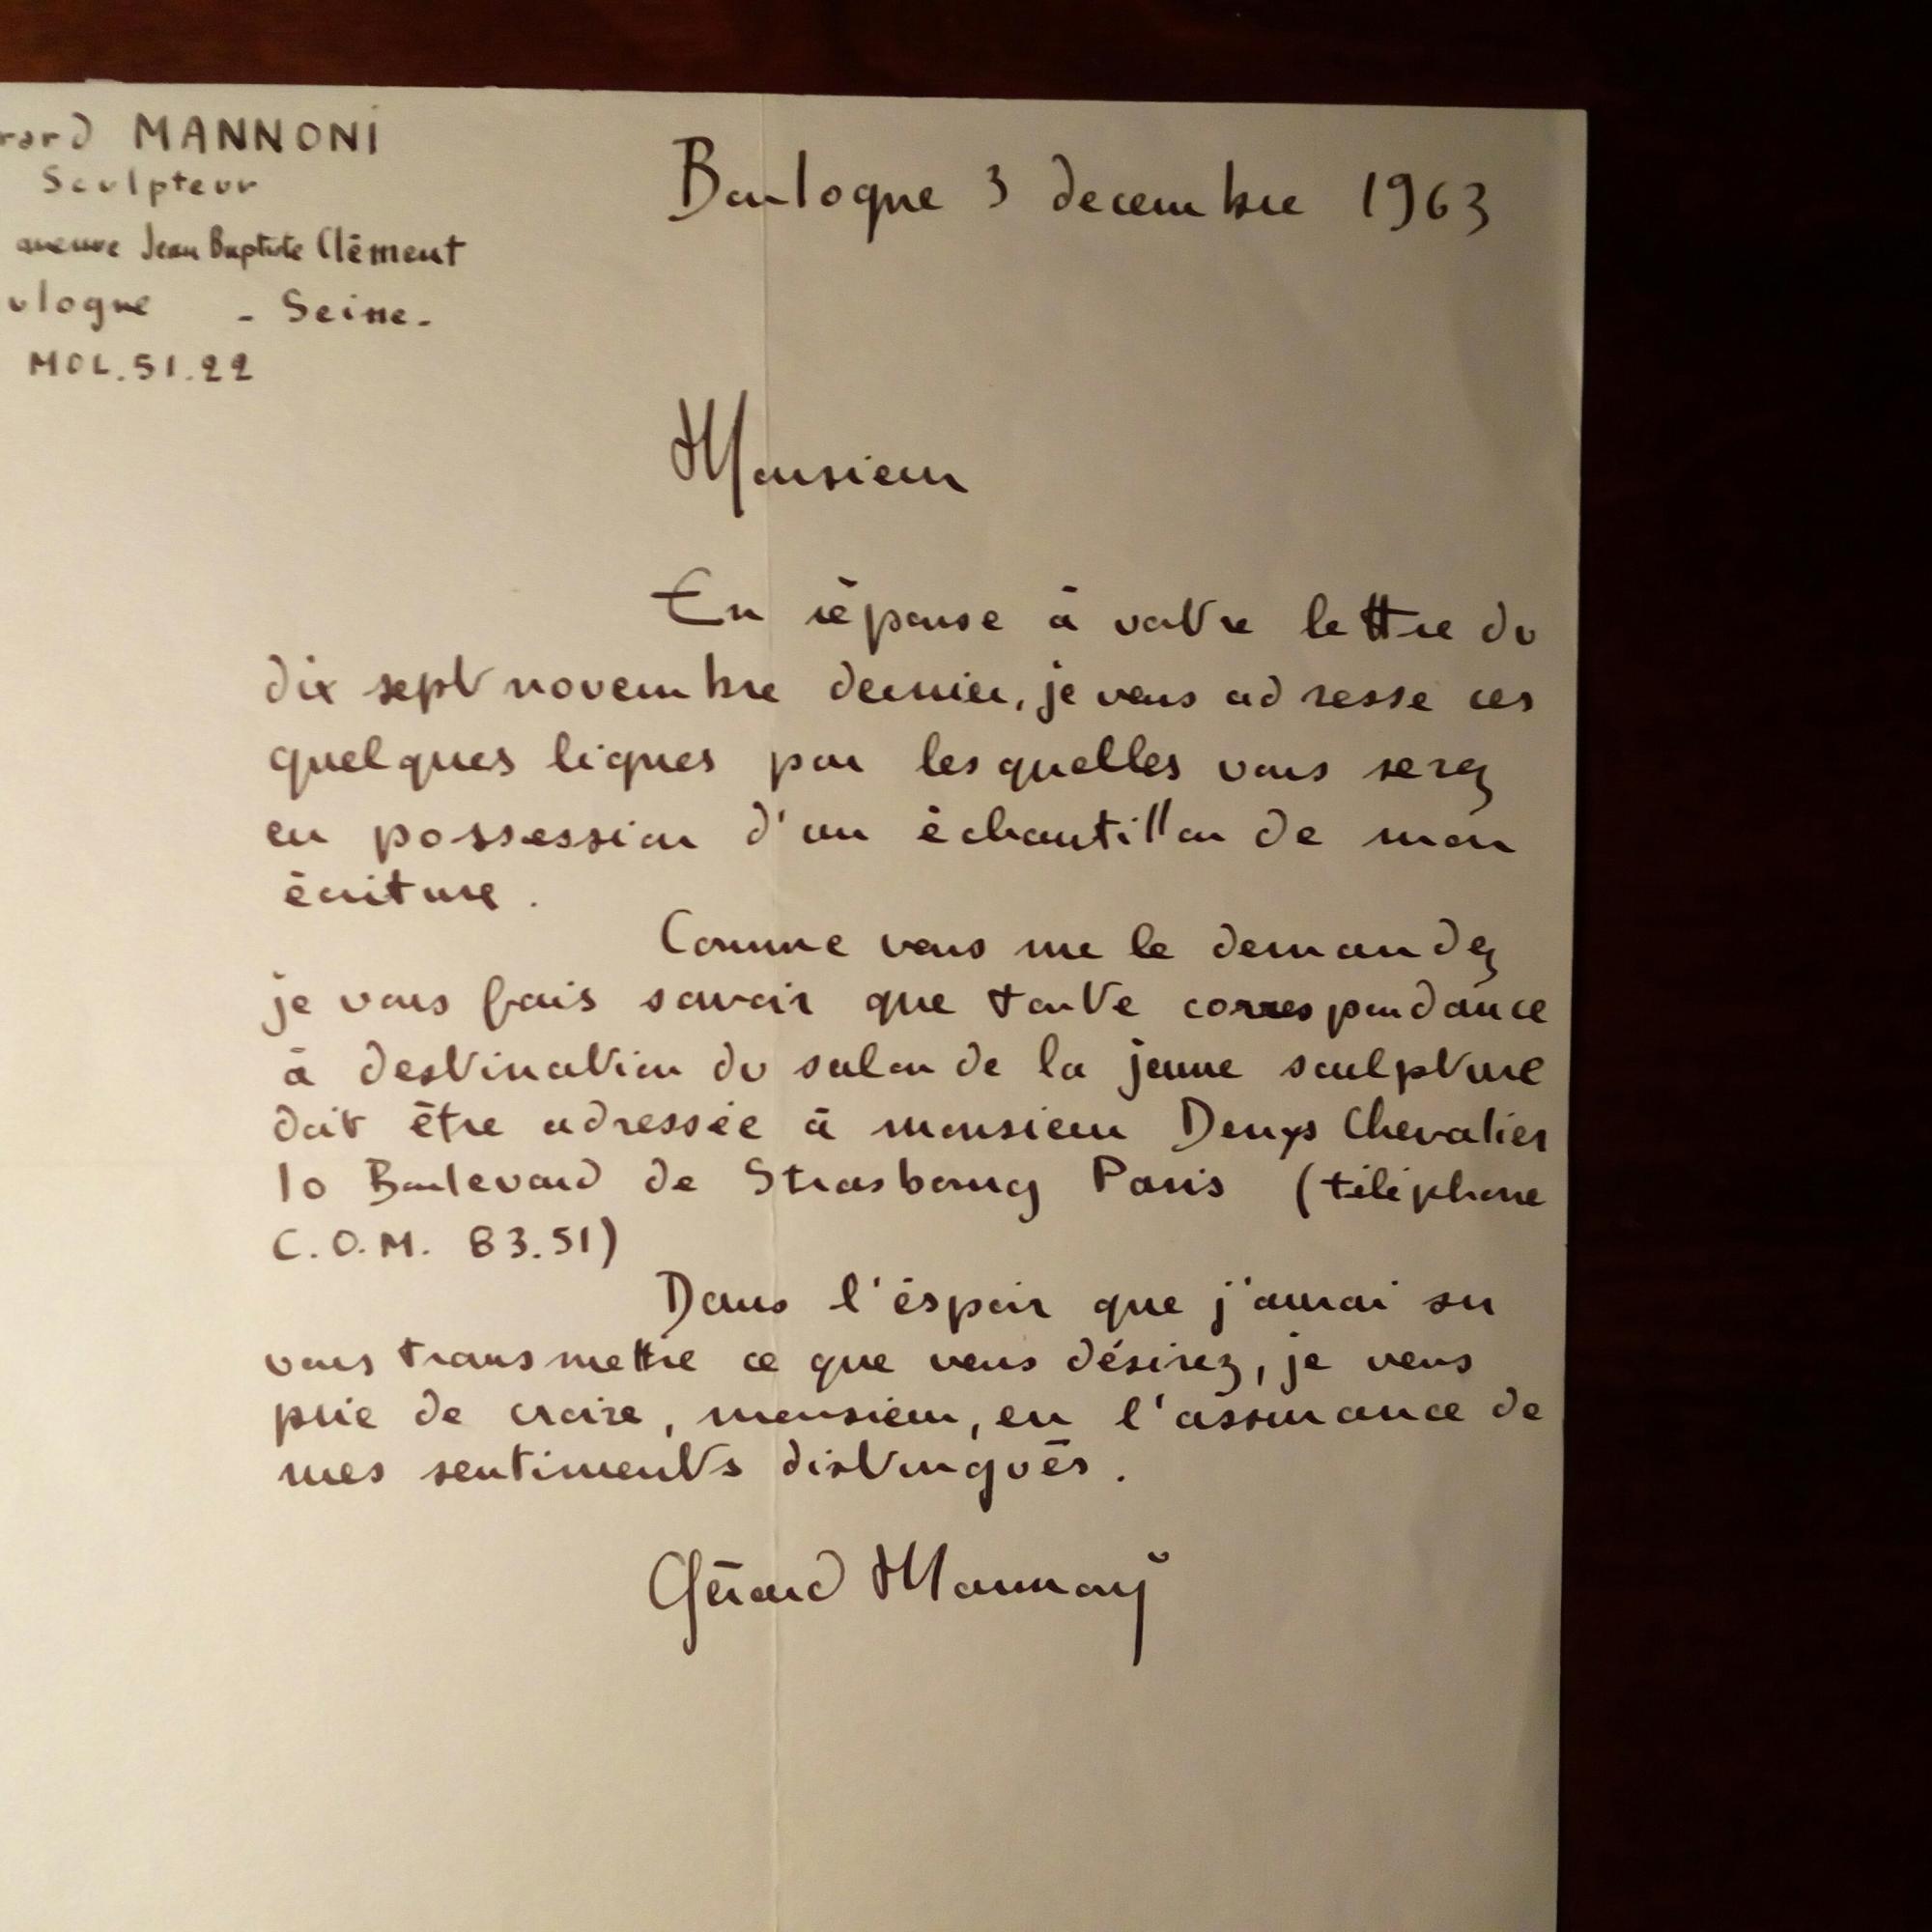 rard MANNONI
Sculpteur
avenue Jean Baptiste Clément
ulogne - Seine-
MOL.51.22
Boulogne 3 decembre 1963
Monsieur
En réponse à votre lettre du
dix sept novembre dernier, je vous adresse ces
quelques lignes par lesquelles vous serez
en possession d'un échantillon de mon
écriture.
Comme vous me le demandez
je vous fais savoir que toute correspondance
à destination du salon de la jeune sculpture
doit être adressée à monsieur Denys Chevalier
10 Boulevard de Strasbourg Paris (téléphone
C.O.M. 83.51)
Dans l'éspoir que j'aurai su
vous transmettre ce que vous désirez, je vous
prie de croire, monsieur, en l'assurance de
mes sentiments distingués.
Gérard Mannoni